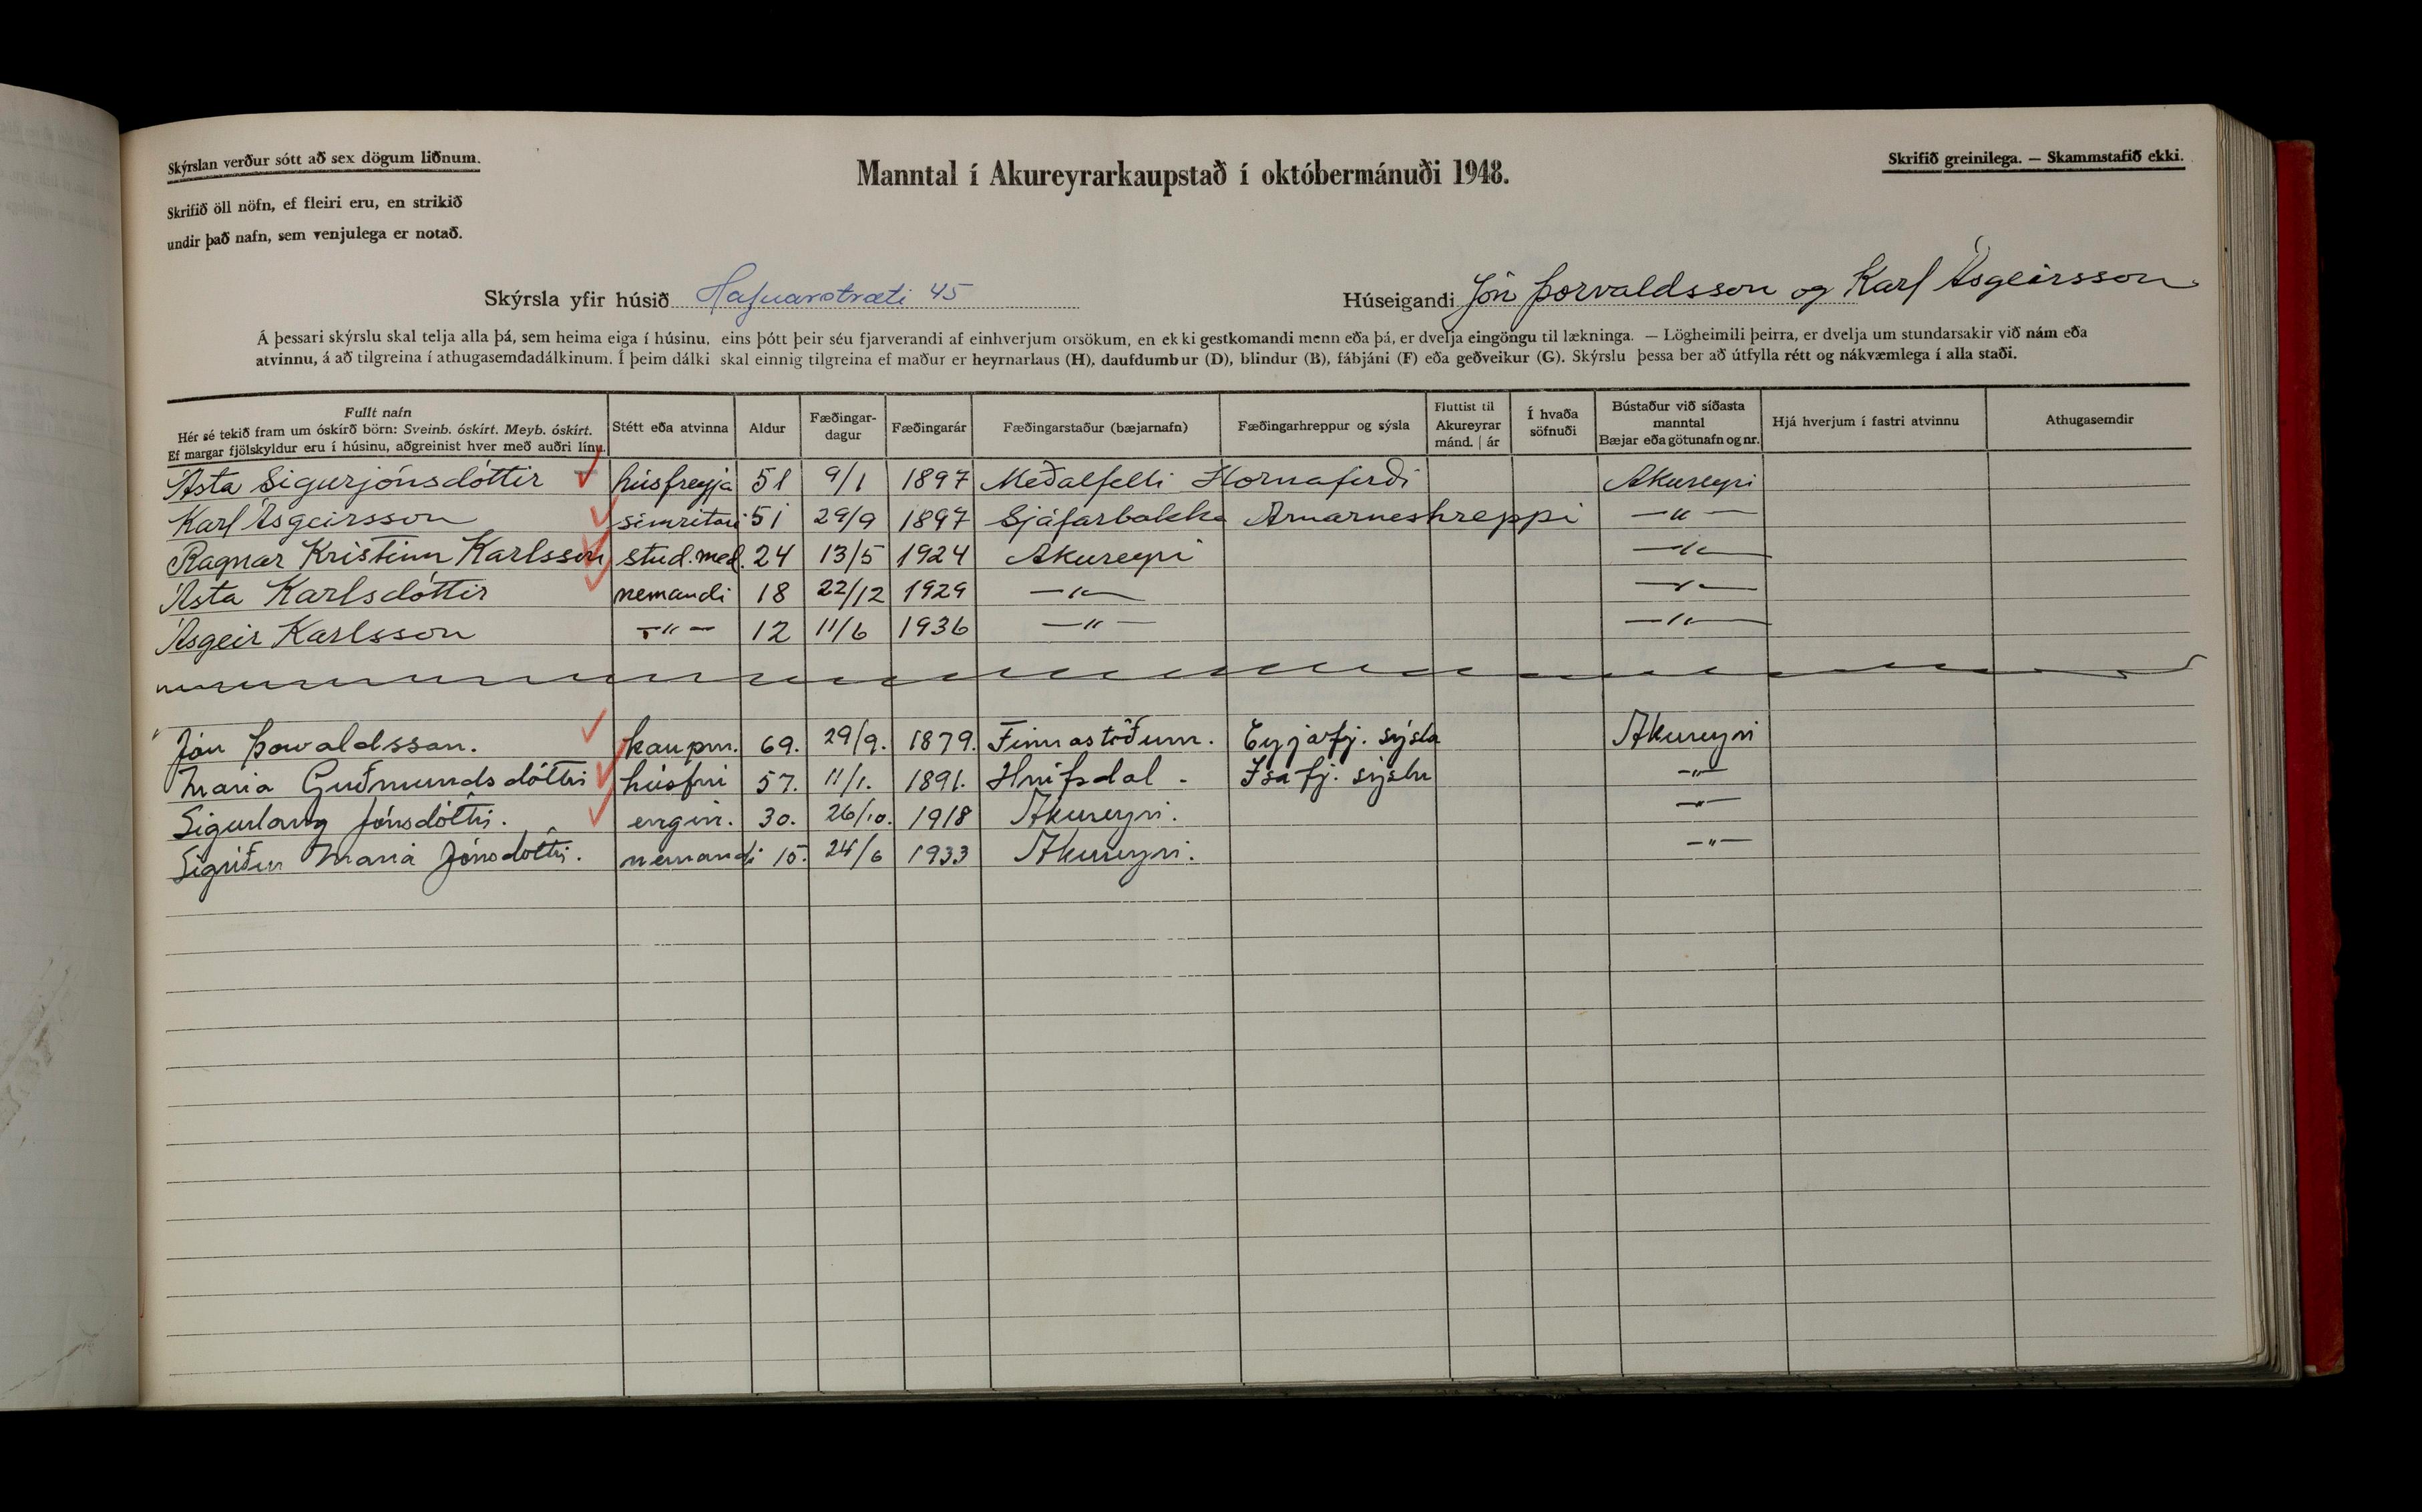 Skýrslan verður sótt að sex dögum liðnum.
Skrifið öll nöfn, ef fleiri eru, en strikið
undir það nafn, sem venjulega er notað.
Manntal í Akureyrarkaupstað í októbermánuði 1948.
Skrifið greinilega. — Skammstafið ekki.
Skýrsla yfir húsið Hafnarstræti 45
Húseigandi Jón Þorvaldsson og Karl Ásgeirsson
Á þessari skýrslu skal telja alla þá, sem heima eiga í húsinu, eins þótt þeir séu fjarverandi af einhverjum orsökum, en ekki gestkomandi menn eða þá, er dvelja eingöngu til lækninga. — Lögheimili þeirra, er dvelja um stundarsakir við nám eða
atvinnu, á að tilgreina í athugasemdadálkinum. Í þeim dálki skal einnig tilgreina ef maður er heyrnarlaus (H), daufdumbur (D), blindur (B), fábjáni (F) eða geðveikur (G). Skýrslu þessa ber að útfylla rétt og nákvæmlega í alla staði.
Fullt nafn
Hér sé tekið fram um óskírð börn: Sveinb. óskírt. Meyb. óskírt.
Ef margar fjölskyldur eru í húsinu, aðgreinist hver með auðri línu.
Stétt eða atvinna
Aldur
Fæðingar-
dagur
Fæðingarár
Fæðingarstaður (bæjarnafn)
Fæðingarhreppur og sýsla
Fluttist til
Akureyrar
mánd. | ár
Í hvaða
söfnuði
Bústaður við síðasta
manntal
Bæjar eða götunafn og nr.
Hjá hverjum í fastri atvinnu
Athugasemdir
Ásta Sigurjónsdóttir húsfreyja 51 9/1 1897 Meðalfelli Hornafirði Akureyri
Karl Ásgeirsson símritari 51 29/9 1897 Sjáfarbakka Arnarneshreppi —"—
Ragnar Kristinn Karlsson stud. med. 24 13/5 1924 Akureyri —"—
Ásta Karlsdóttir nemandi 18 22/12 1929 —"— —"—
Ásgeir Karlsson —"— 12 11/6 1936 —"— —"—
Jón Þorvaldsson. kaupm. 69. 29/9. 1879. Finnastöðum. Eyjafj. sýsla Akureyri
María Guðmundsdóttir húsfrú 57. 11/1. 1891. Hnífsdal - Ísafj. sýslu —"—
Sigurlaug Jónsdóttir. engin. 30. 26/10. 1918 Akureyri. —"—
Sigríður María Jónsdóttir. nemandi 15. 24/6 1933 Akureyri. —"—